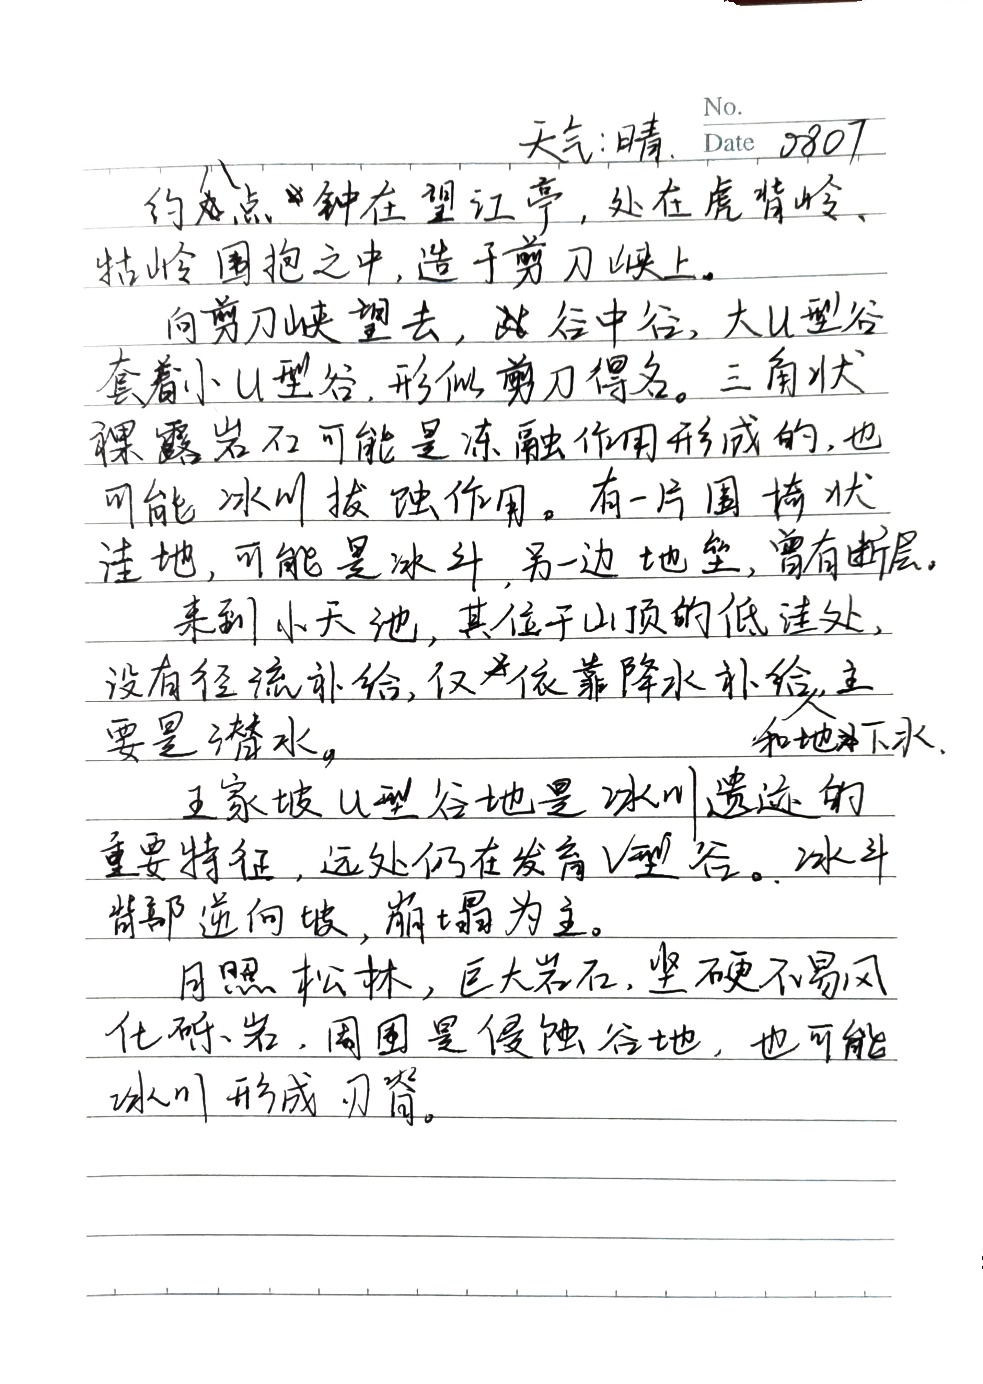 No.
天气:晴. Date 0807
约八点钟在望江亭,处在虎背岭、
牯岭围抱之中,造于剪刀峡上。
向剪刀峡望去,谷中谷,大U型谷
套着小U型谷,形似剪刀得名。三角状
裸露岩石可能是冻融作用形成的,也
可能冰川拔蚀作用。有一片围椅状
洼地,可能是冰斗,另一边地垒,曾有断层。
来到小天池,其位于山顶的低洼处,
没有径流补给,仅依靠降水补给,主
要是潜水。 和地下水.
王家坡U型谷地是冰川遗迹的
重要特征,远处仍在发育V型谷。冰斗
背部逆向坡,崩塌为主。
月照松林,巨大岩石,坚硬不易风
化砾岩,周围是侵蚀谷地,也可能
冰川形成刃脊。